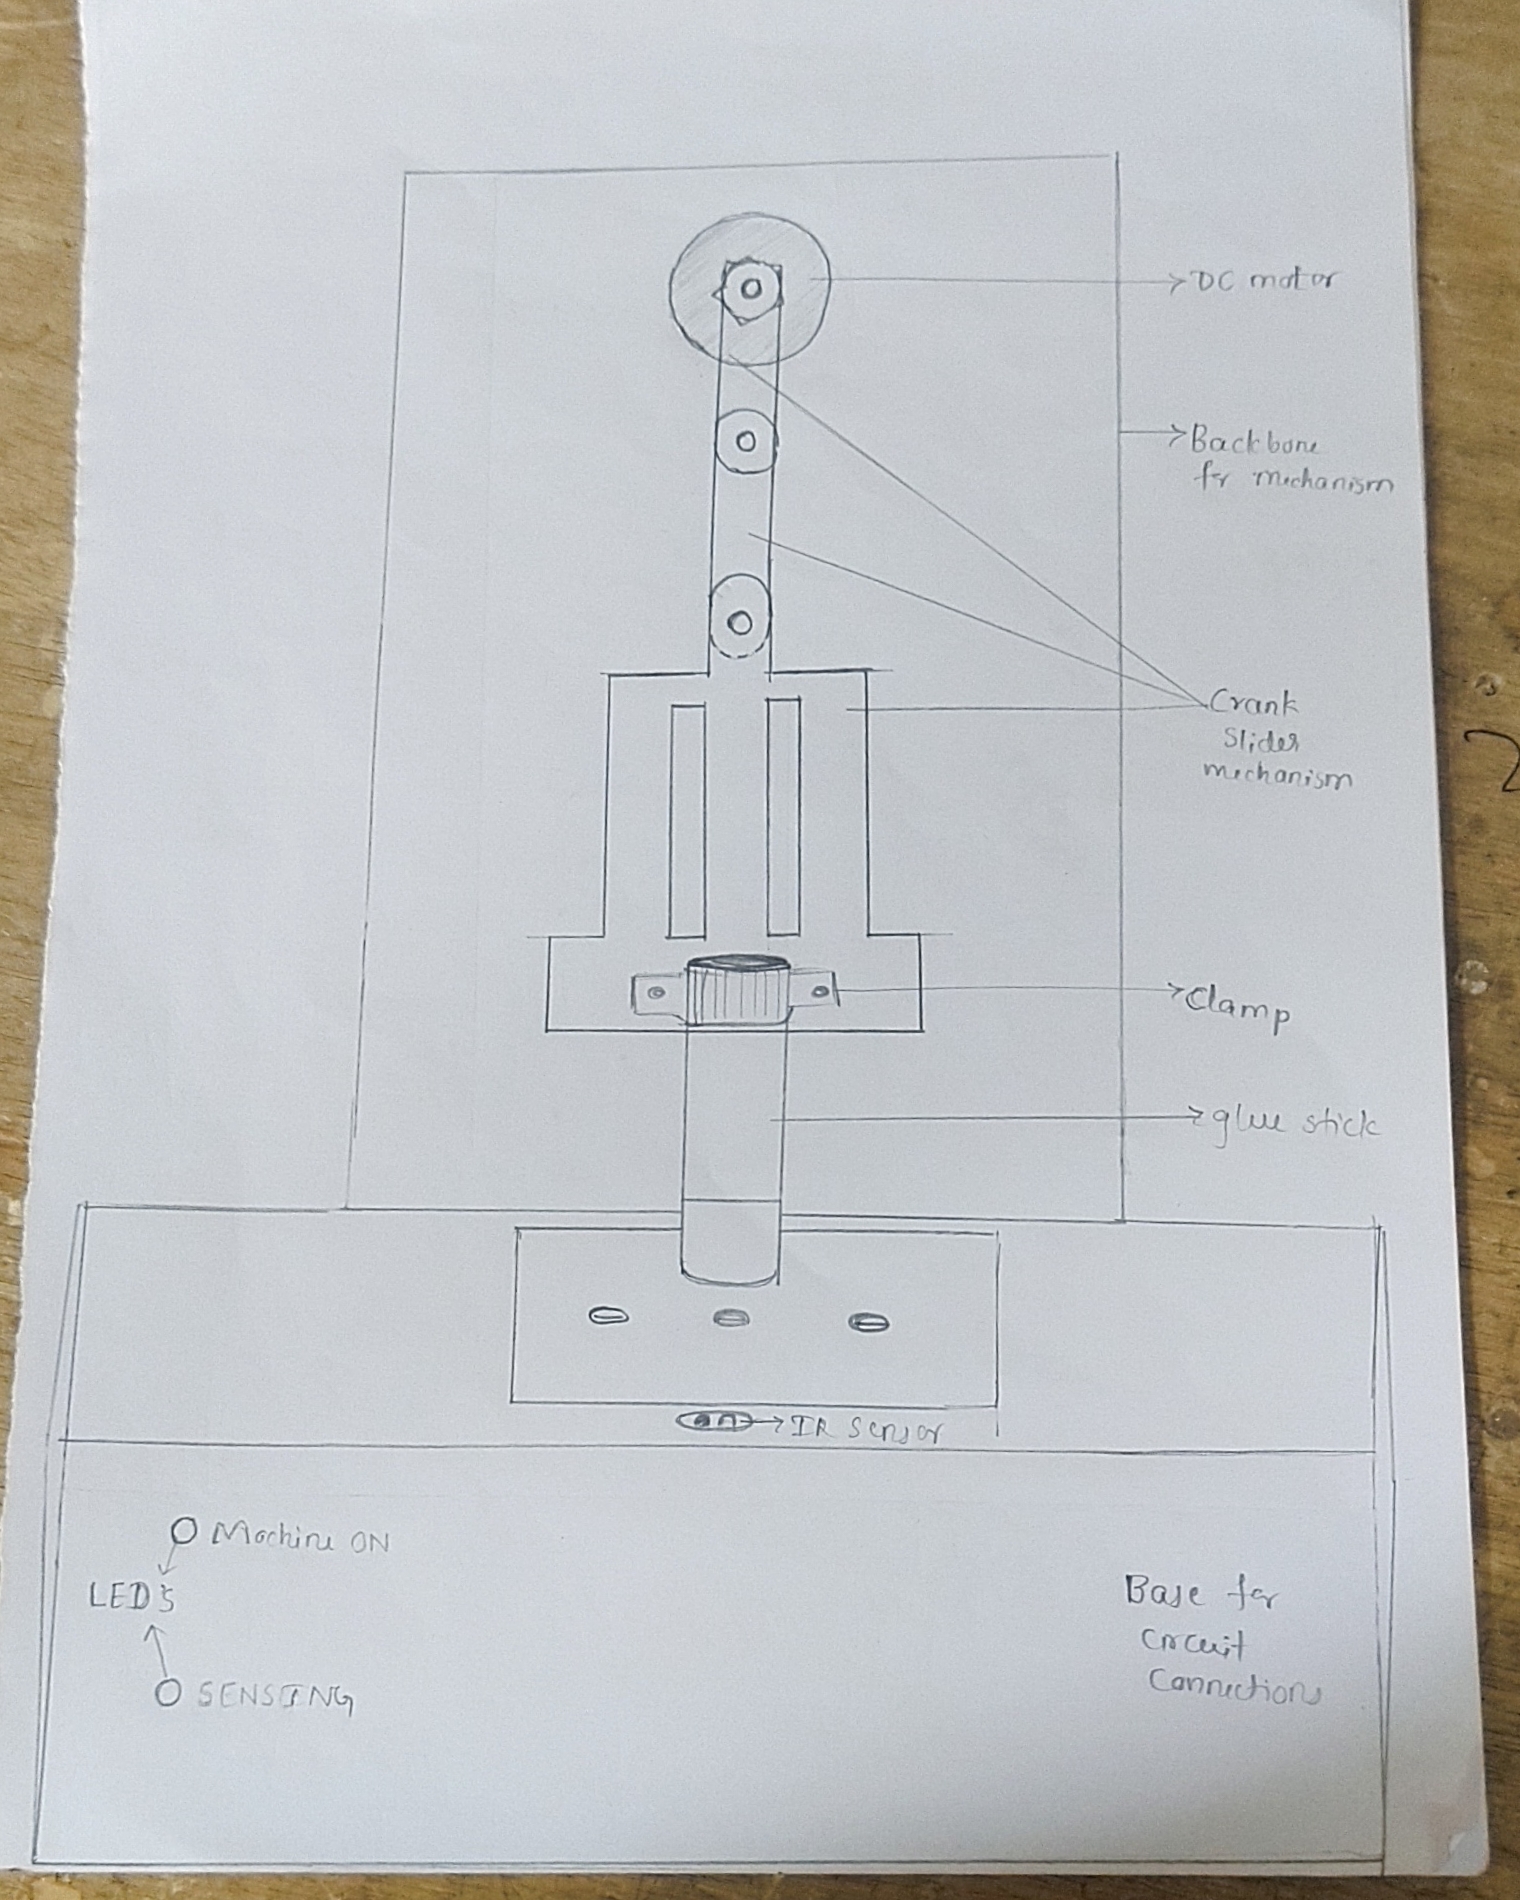 DC motor
Backbone
for mechanism
Crank
Slider
mechanism
Clamp
glue stick
IR Sensor
Machine ON
LED's
SENSING
Base for
Circuit
Connections